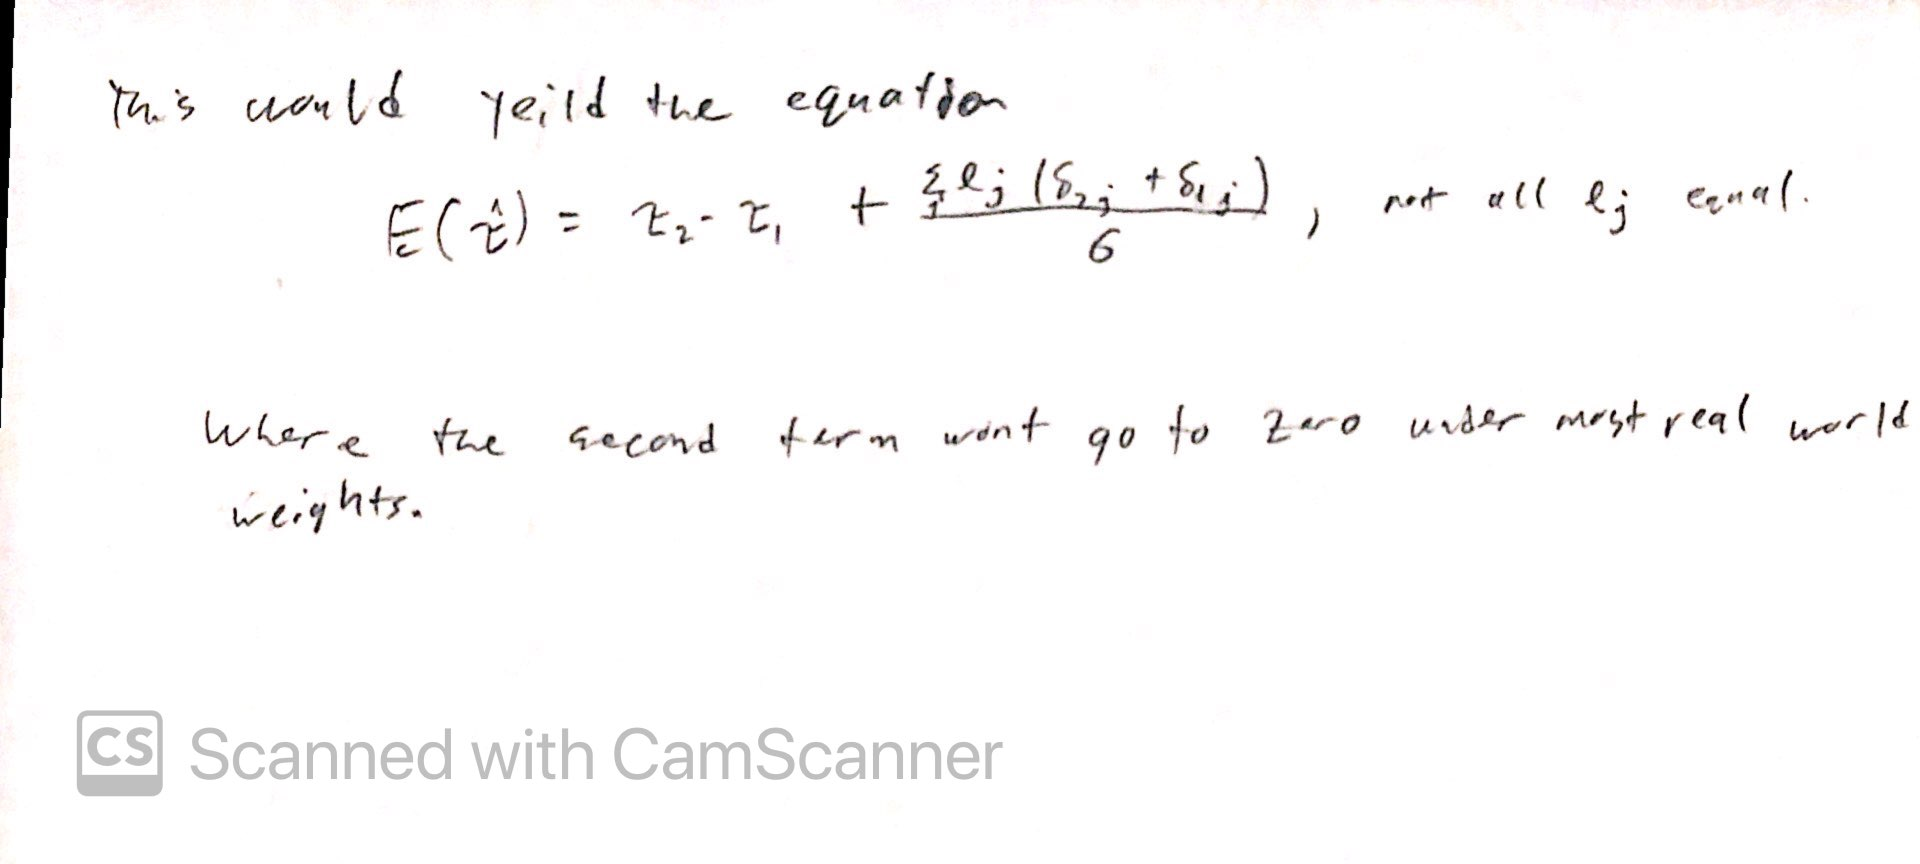 This would yeild the equation
E(τ̂) = τ₂ - τ₁ + Σⱼ lⱼ (δ₂ⱼ + δ₁ⱼ) / 6 , not all lⱼ equal.
Where the second term wont go to zero under most real world
weights.
CS Scanned with CamScanner